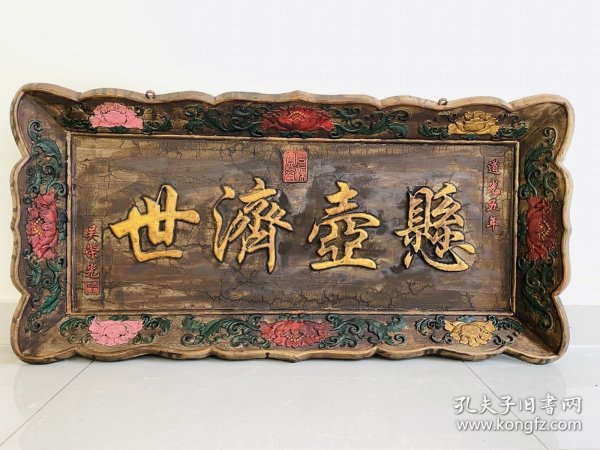 道光五年
懸壺濟世
吳榮光
孔夫子旧书网
www.kongfz.com